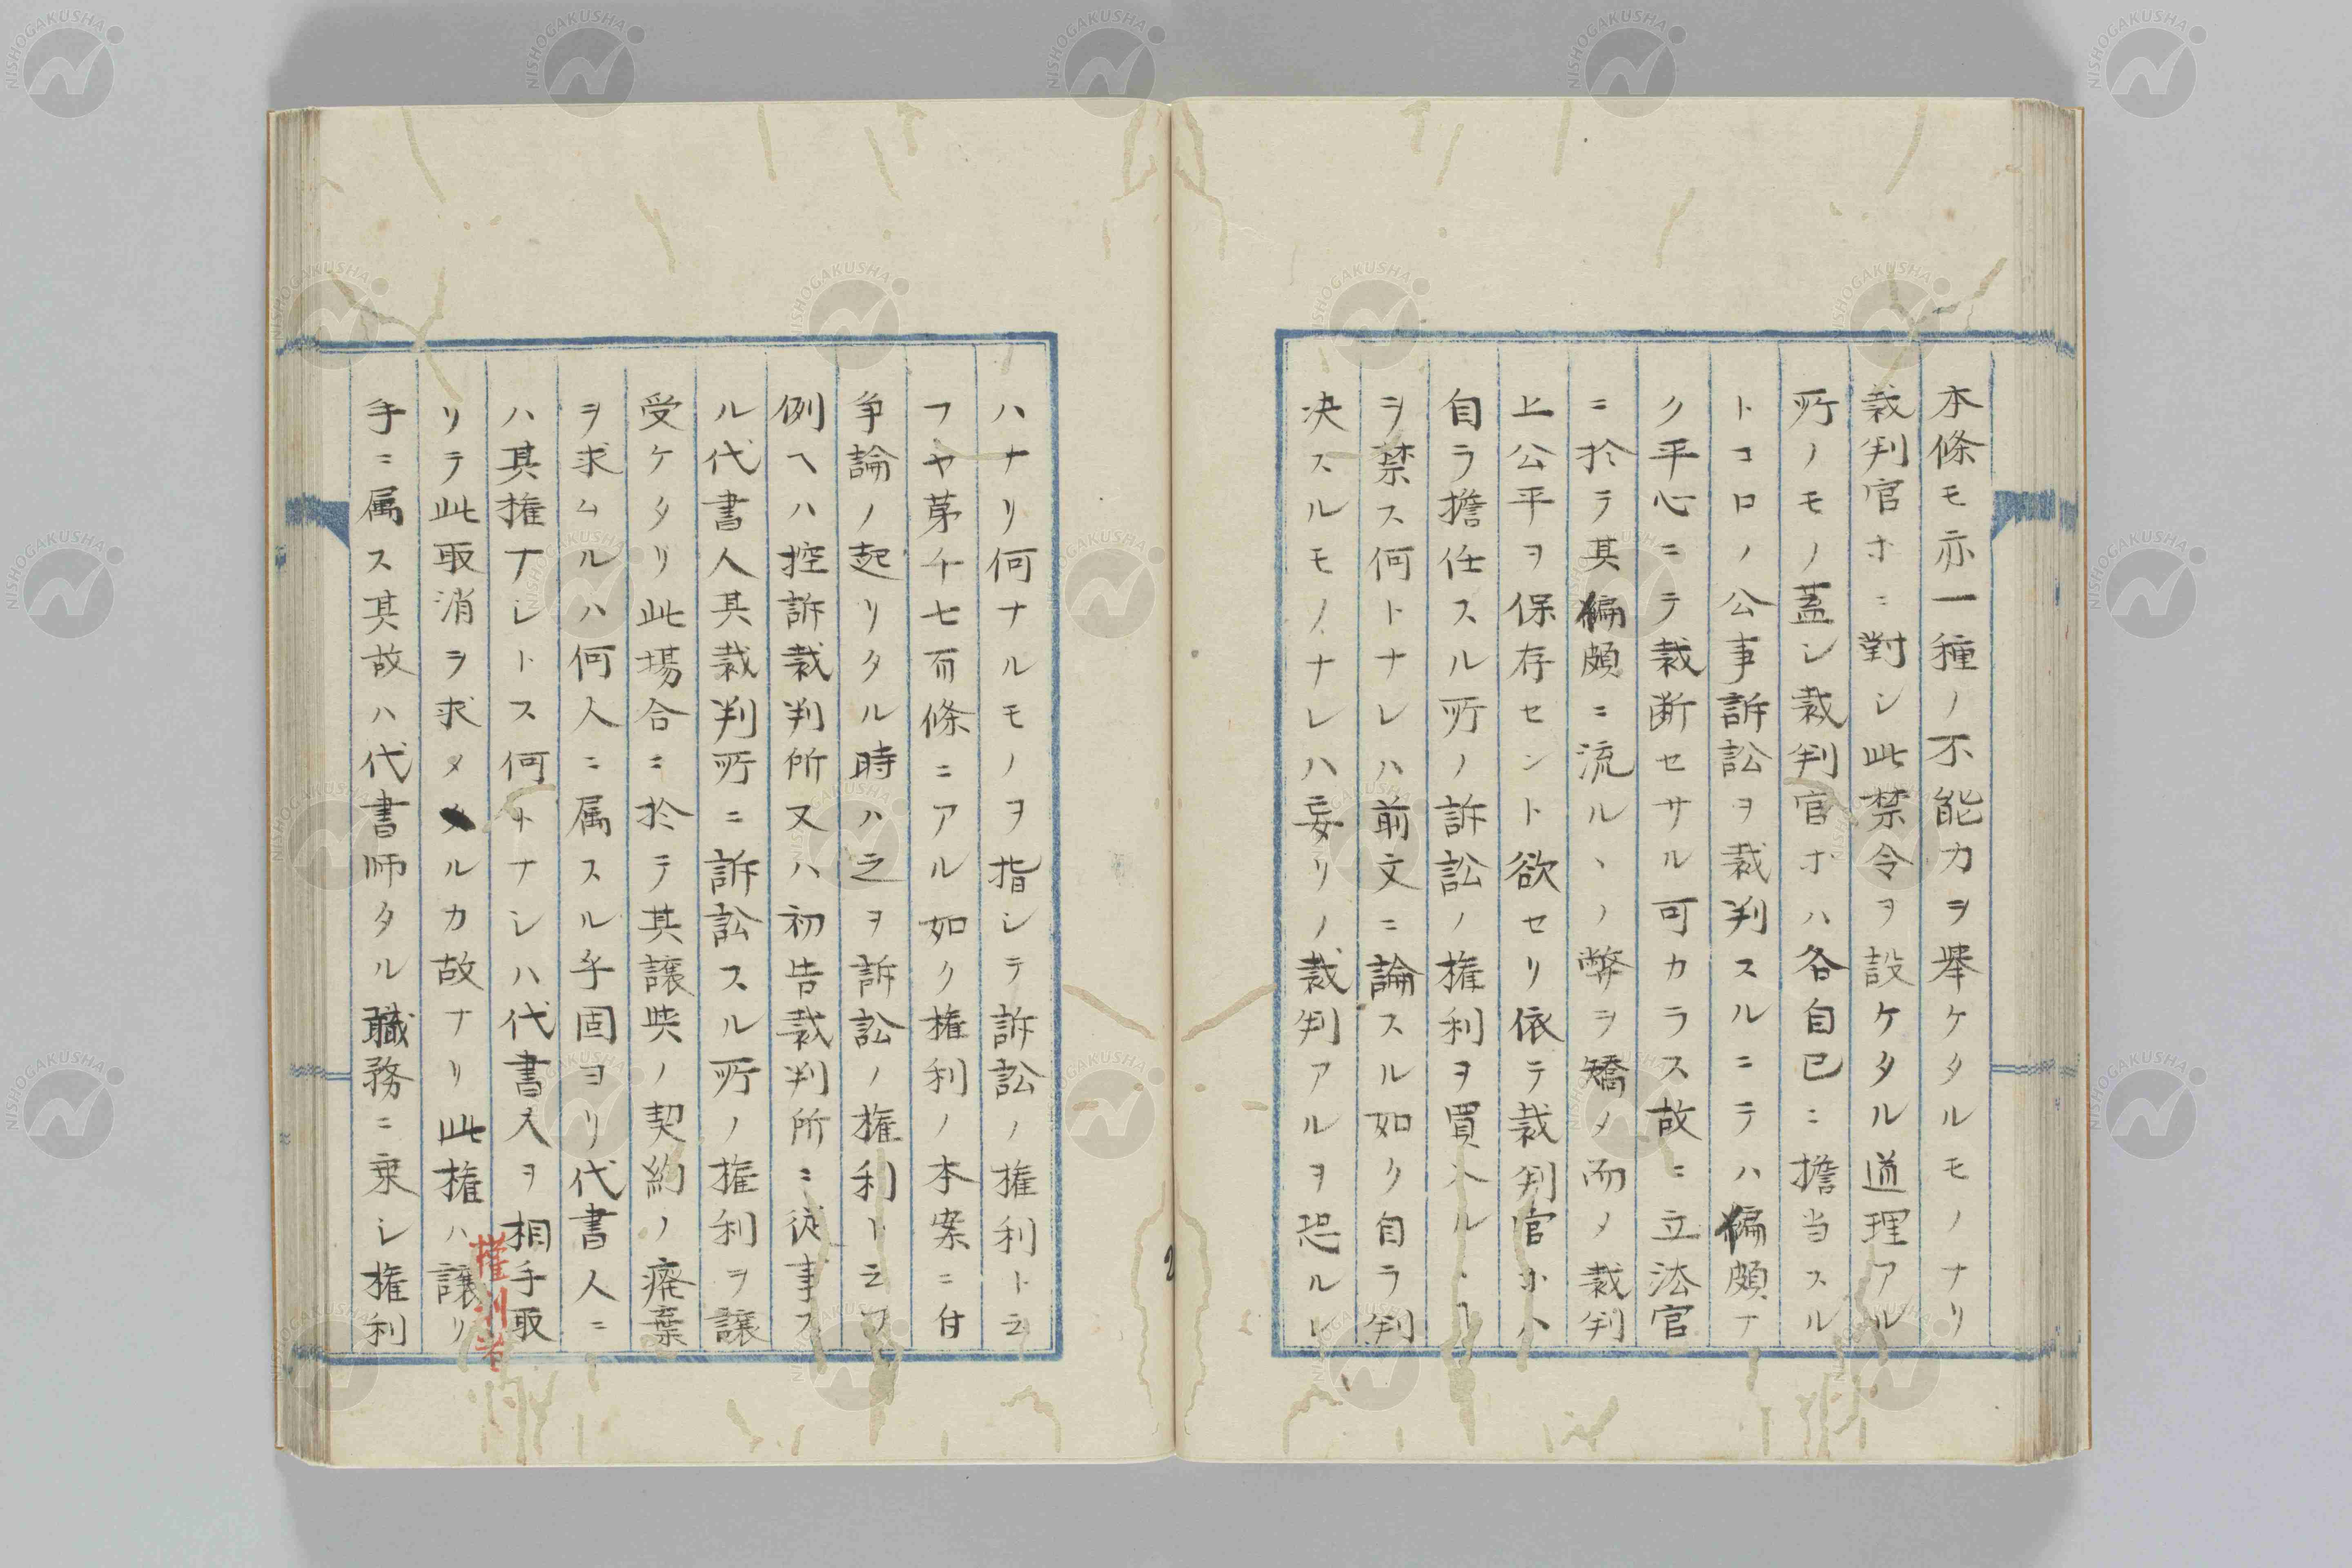 本條モ亦一種ノ不能力ヲ擧ケタルモノナリ
裁判官ホニ對シ此禁令ヲ設ケタル道理アル
所ノモノ蓋シ裁判官ホハ各自已ニ擔当スル
トコロノ公事訴訟ヲ裁判スルニテハ偏頗ナ
ク平心ニテ裁断セサル可カラス故ニ立法官
ニ於テ其偏頗ニ流ルヽノ弊ヲ矯メ而メ裁判
上公平ヲ保存セント欲セリ依テ裁判官ホハ
自ラ擔任スル所ノ訴訟ノ権利ヲ買入ルヽヿ
ヲ禁ス何トナレハ前文ニ論スル如ク自ラ判
决スルモノナレハ妄リノ裁判アルヲ恐ルレ
ハナリ何ナルモノヲ指シテ訴訟ノ権利ト云
フヤ苐千七百條ニアル如ク権利ノ本案ニ付
争論ノ起リタル時ハ之ヲ訴訟ノ権利ト云フ
例ヘハ控訴裁判所又ハ初告裁判所ニ従事ス
ル代書人其裁判所ニ訴訟スル所ノ権利ヲ譲
受ケタリ此場合ニ於テ其譲與ノ契約ノ廃棄
ヲ求ムルハ何人ニ属スル乎固ヨリ代書人ニ
ハ其権ナシトス何トナシハ代書人ヲ相手取
リテ此取消ヲ求メタルカ故ナリ此権ハ譲リ
権利者
手ニ属ス其故ハ代書師タル職務ニ乗シ権利
NISHOGAKUSHA